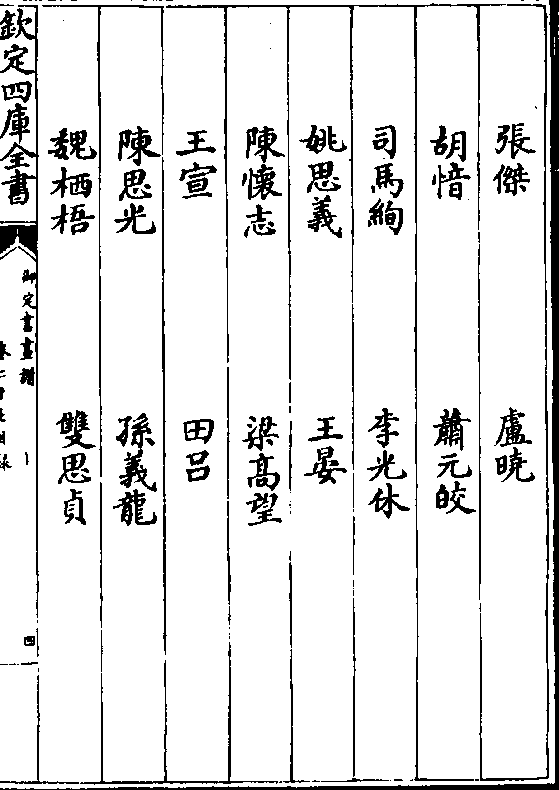 張傑　盧曉
胡愔　蕭元皎
司馬絢　李光休
姚思義　王晏
陳懷志　梁髙望
王宣　田吕
陳思光　孫義龍
魏栖梧　雙思貞
欽定四庫全書
御定書畫譜
四